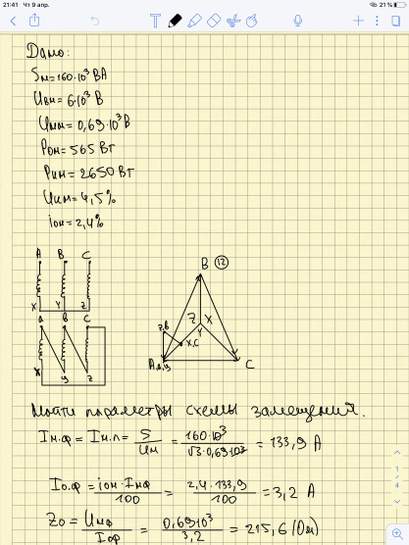 21:41 Чт 9 апр.
21 %
Дано:
Sн=160·10³ ВА
Uвн=6·10³ В
Uнн=0,69·10³В
Pон=565 Вт
Pкн=2650 Вт
Uкн=4,5%
iон=2,4%
A B C
X Y Z
a B C
x y z
B 12
Z X
Y
z,B
x,C
A,a,y C
Найти параметры схемы замещения.
Iн.ф = Iн.л = S/Uн = 160·10³/√3·0,69·10³ = 133,9 А
Iо.ф = iон·Iнф/100 = 2,4·133,9/100 = 3,2 А
Zо = Uнф/Iоф = 0,69·10³/3,2 = 215,6 (Ом)